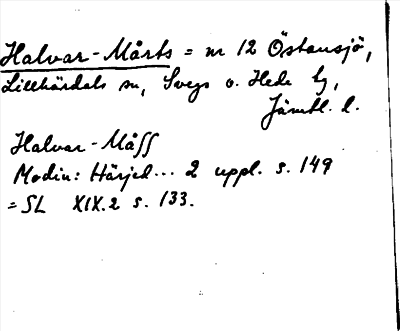 Halvar-Mårts = nr 12 Östansjö,
Lillhärdals sn, Svegs o. Hede tg,
Jämtl. l.
Halvar-Måss
Modin: Härjed... 2 uppl. s. 149
= SL XIX.2 s. 133.